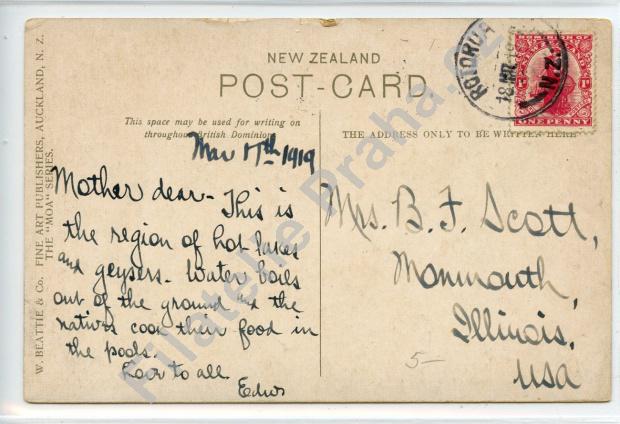 NEW ZEALAND
POST-CARD
This space may be used for writing on
throughout British Dominions
THE ADDRESS ONLY TO BE WRITTEN HERE
W. BEATTIE & Co. FINE ART PUBLISHERS, AUCKLAND, N. Z.
THE "MOA" SERIES.
Mar 17th 1919
Mother dear - This is
the region of hot lakes
and geysers - Water boils
out of the ground and the
natives cook their food in
the pools.
Love to all
Mrs. B. F. Scott,
Monmouth,
Illinois,
USA
5-
ROTORUA
18 MR
N.Z.
DOMINION OF
1d 1d
ONE PENNY
Filatelie Praha